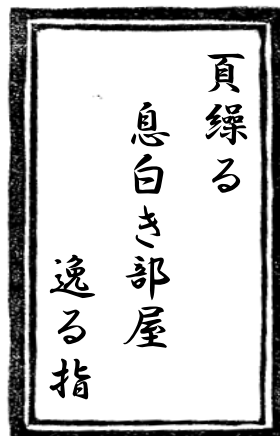 頁繰る
息白き部屋
逸る指